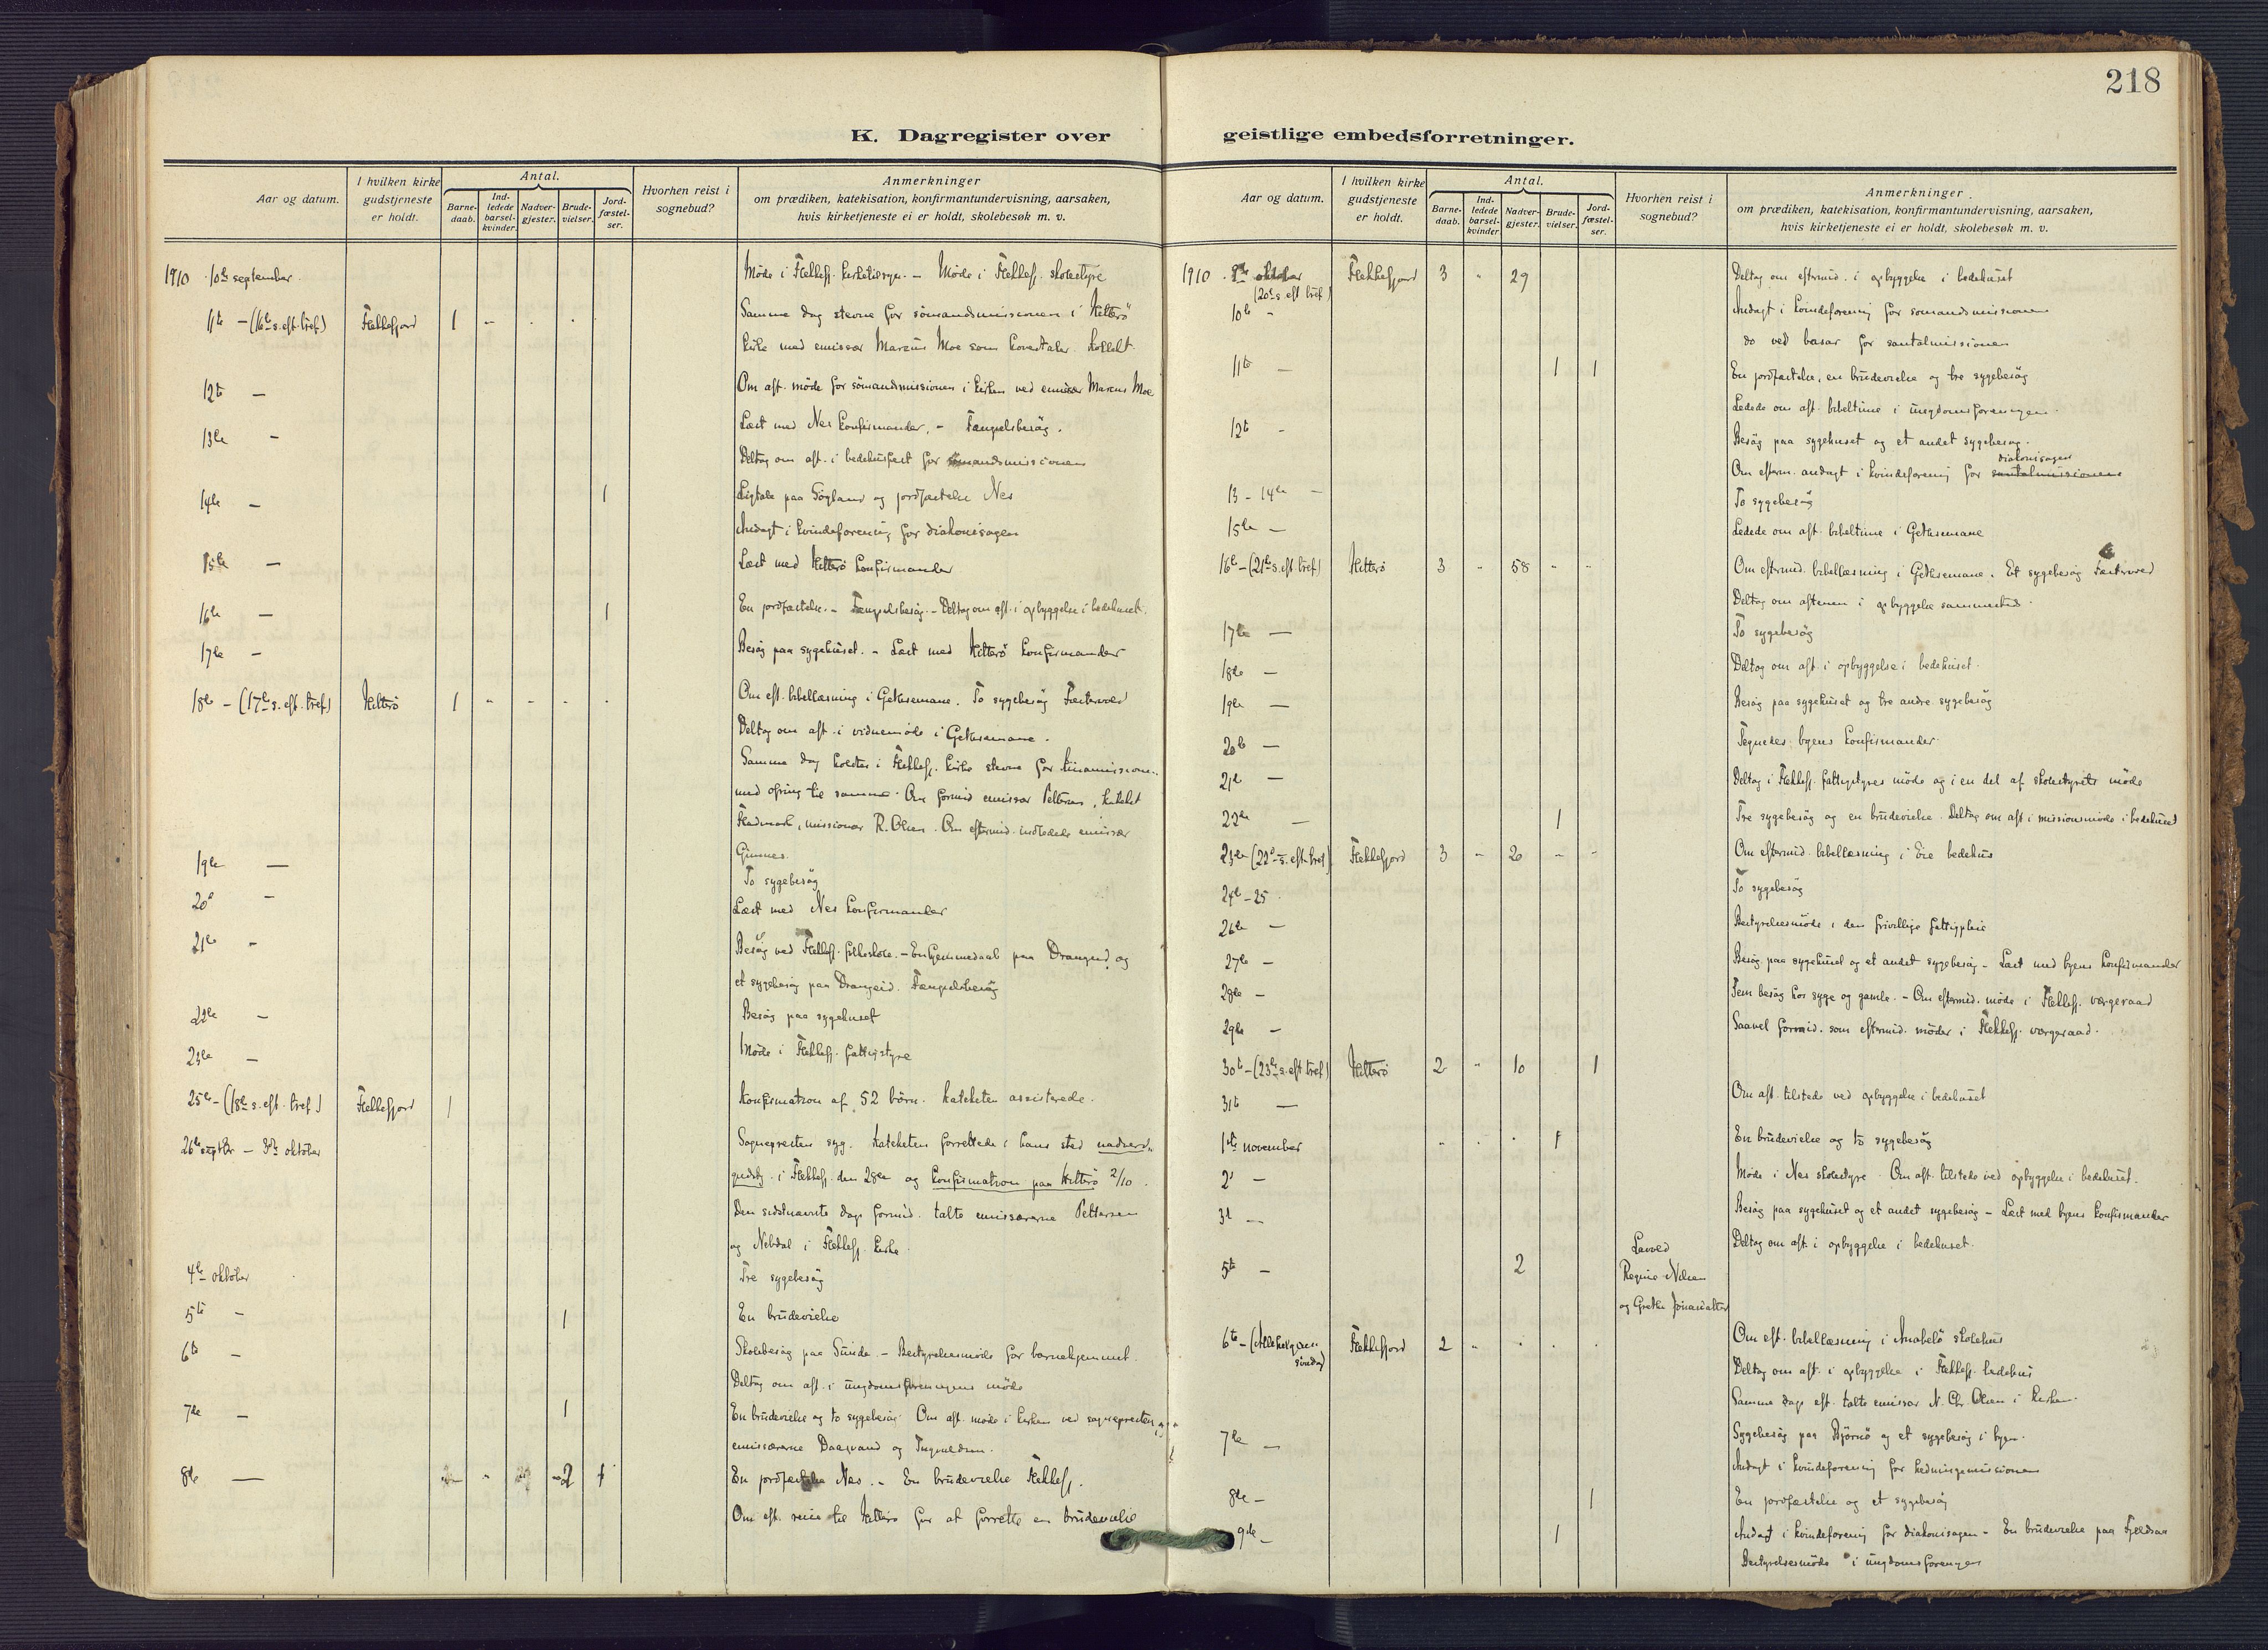 218
K. Dagregister over geistlige embedsforretninger.
Aar og datum.
I hvilken kirke gudstjeneste er holdt.
Antal.
Barne-daab.
Ind-ledede barsel-kvinder.
Nadver-gjester.
Brude-vielser.
Jord-fæstel-ser.
Hvorhen reist i sognebud?
Anmerkninger
om prædiken, katekisation, konfirmantundervisning, aarsaken,
hvis kirketjeneste ei er holdt, skolebesøk m. v.
1910 10de september. Møde i Flekkefj. kirketilsyn. – Møde i Flekkefj. skolestyre
11te – (16de s. eft. tref.) Flekkefjord 1 Samme dag stevne for sømandsmissionen i Hitterø
kirke med emissær Marcus Moe som hovedtaler. Kollekt.
12te – Om aft. møde for sømandsmissionen i kirken ved emissær Marcus Moe
13de – Læst med Nes konfirmander. – Fængselsbesøg.
Deltog om aft. i bedehusfest for sømandsmissionen
14de – 1 Ligtale paa Søgland og jordfæstelse Nes
Andagt i kvindeforening for diakonisagen
15de – Læst med Hitterø konfirmander
16de – 1 En jordfæstelse. – Fængselsbesøg. – Deltog om aft. i opbyggelse i bedehuset.
17de – Besøg paa sygehuset. – Læst med Hitterø konfirmander
18de – (17de s. eft. tref.) Hitterø 1 Om eft. bibellæsning i Gethsemane. To sygebesøg
Deltog om aft. i vidnemøde i Gethsemane.
Samme dag holdtes i Flekkefj. kirke stevne for kinamissionen
med ofring til samme. Om formid. emissær Pettersen, kateket
missionær R. Olsen. Om eftermid. indledede emissær
Gimnes.
19de – To sygebesøg
20de – Læst med Nes konfirmander
21de – Besøg ved Flekkefj. folkeskole. – En hjemmedaab paa Drangeid og
et sygebesøg paa Drangeid. Fængselsbesøg
22de – Besøg paa sygehuset
23de – Møde i Flekkefj. fattigstyre
25de – (18de s. eft. tref.) Flekkefjord 1 Konfirmation af 52 børn. Kateketen assisterede.
26de septbr – 3die oktober Sognepresten syg. Kateketen forrettede i hans sted nadverd-
gudstj. i Flekkefj. den 28de og konfirmation paa Hitterø 2/10.
Den sidstnævnte dags formid. talte emissærerne Pettersen
og Nebdal i Flekkefj. kirke.
4de oktober Tre sygebesøg
5te – 1 En brudevielse
6te – Skolebesøg paa Sunde. – Bestyrelsesmøde for barnehjemmet.
Deltog om aft. i ungdomsforeningens møde
7de – 1 En brudevielse og to sygebesøg. Om aft. møde i kirken ved sognepresten og
emissærerne Daasvand og
8de – 2 1 En jordfæstelse Nes. – En brudevielse Flekkefj.
Om eft. reise til Hitterø for at forrette en brudevielse
Aar og datum.
I hvilken kirke gudstjeneste er holdt.
Antal.
Barne-daab.
Ind-ledede barsel-kvinder.
Nadver-gjester.
Brude-vielser.
Jord-fæstel-ser.
Hvorhen reist i sognebud?
Anmerkninger.
om prædiken, katekisation, konfirmantundervisning, aarsaken,
hvis kirketjeneste ei er holdt, skolebesøk m. v.
1910 9de oktober (20de s. eft. tref.) Flekkefjord 3 - 29 Deltog om eftermid. i opbyggelse i bedehuset
10de – Andagt i kvindeforening for sømandsmissionen
do ved basar for santalmissionen
11te – 1 1 En jordfæstelse, en brudevielse og tre sygebesøg
Ledede om aft. bibeltime i ungdomsforeningen.
12te – Besøg paa sygehuset og et andet sygebesøg.
Om efterm. andagt i kvindeforening for santalmissionen diakonisagen
13 – 14de – To sygebesøg
15de – Ledede om aft. bibeltime i Gethsemane
16de – (21de s. eft. tref.) Hitterø 3 - 58 - - Om eftermid. bibellæsning i Gethsemane. Et sygebesøg
Deltog om aftenen i opbyggelse sammesteds.
17de – To sygebesøg
18de – Deltog om aft. i opbyggelse i bedehuset.
19de – Besøg paa sygehuset og tre andre sygebesøg
20de – Tegnedes byens konfirmander.
21de – Deltog i Flekkefj. fattigstyres møde og i en del af skolestyrets møde
22de – 1 Tre sygebesøg og en brudevielse. Deltog om aft. i missionsmøde i bedehuset
23de (22de s. eft. tref.) Flekkefjord 3 - 20 - - Om eftermid. bibellæsning i Eie bedehus
24de – 25 To sygebesøg
26de – Bestyrelsesmøde i den frivillige fattigpleie
27de – Besøg paa sygehuset og et andet sygebesøg – Læst med byens konfirmander
28de – Fem besøg hos syge og gamle. – Om eftermid. møde i Flekkefj. værgeraad
29de – Saavel formid. som eftermid. møder i Flekkefj. værgeraad.
30te – (23de s. eft. tref.) Hitterø 2 - 10 1
31te – Om aft. tilstede ved opbyggelse i bedehuset
1ste november 1 En brudevielse og to sygebesøg
2den – Møde i Nes skolestyre. Om aft. tilstede ved opbyggelse i bedehuset.
3die – Besøg paa sygehuset og et andet sygebesøg – Læst med byens konfirmander
Deltog om aft. i opbyggelse i bedehuset.
5te – 2 Regine Nilsen
og Grethe
6te – (Allehelgens søndag) Flekkefjord 2 Om eft. bibellæsning i Anabelø skolehus
Deltog om aft. i opbyggelse i Flekkefj. bedehus
Samme dags eft. talte emissær N. Chr. Olsen i kirken.
7de – Sygebesøg paa Bjørnø og et sygebesøg i byen.
Andagt i kvindeforening for hedningemissionen
8de – 1 En jordfæstelse og et sygebesøg
9de – 1 Andagt i kvindeforening for diakonisagen – En brudevielse paa
Bestyrelsesmøde i ungdomsforeningen